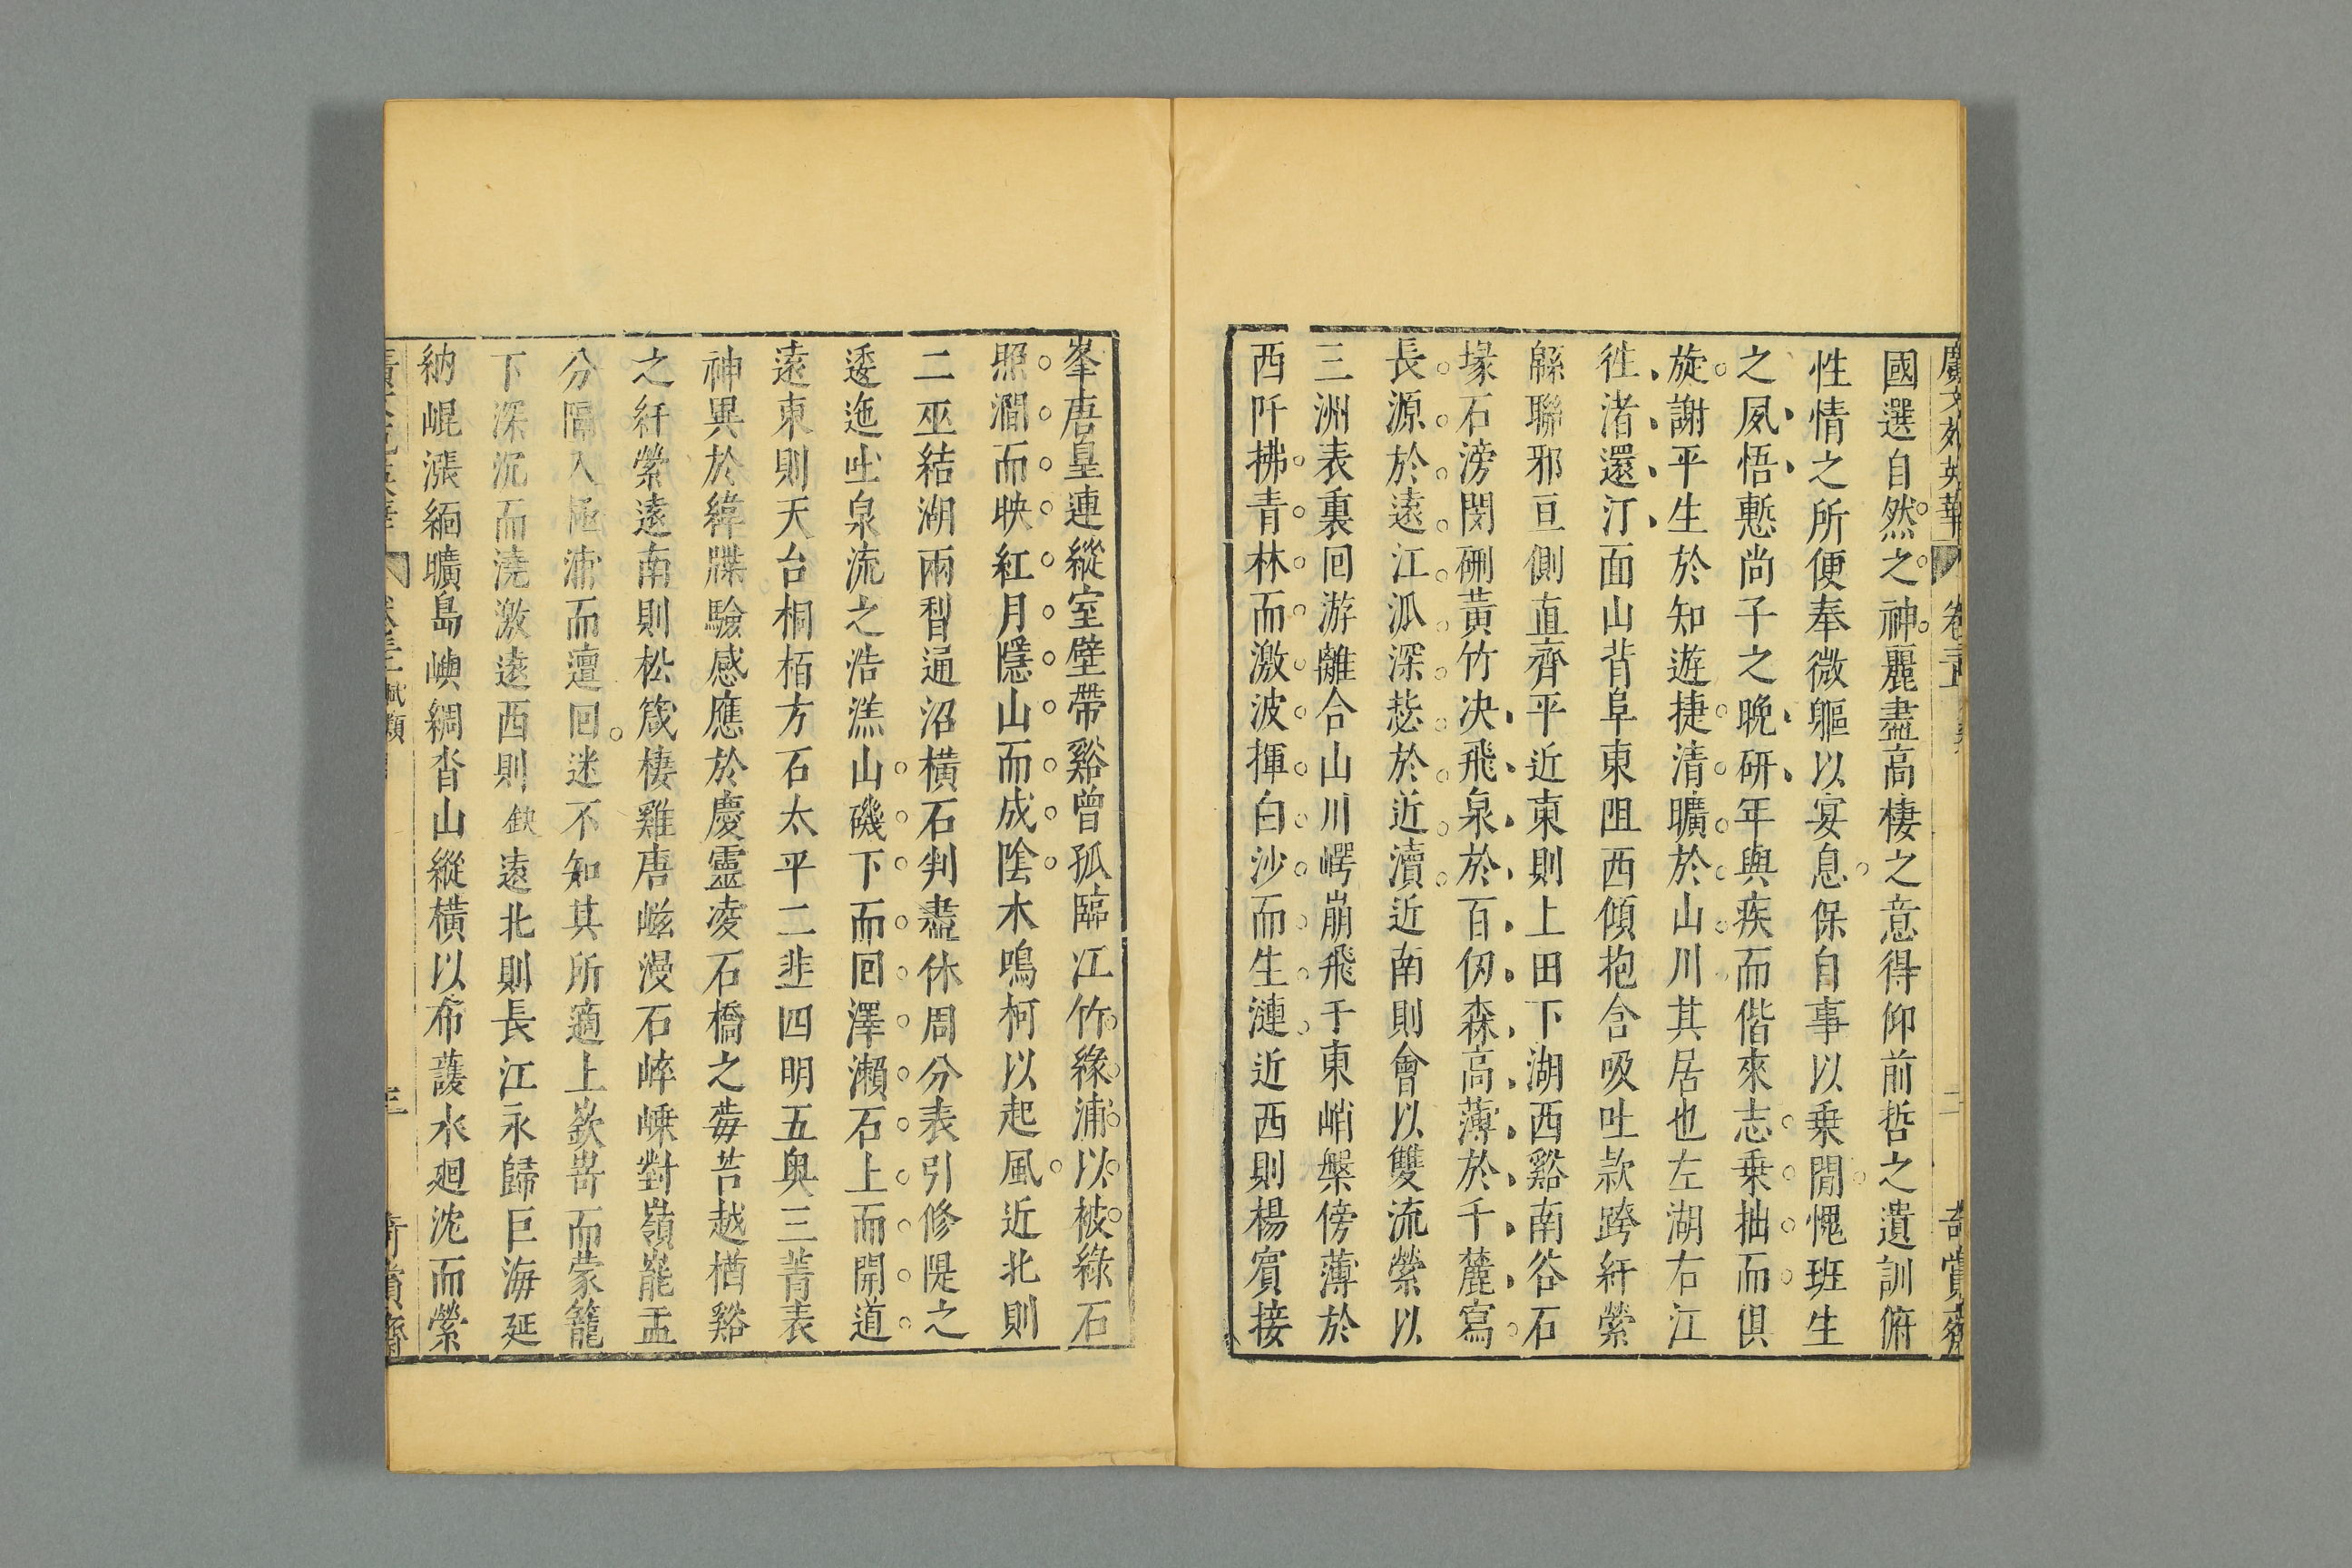 國選自然之神麗盡高棲之意得仰前哲之遺訓俯
性情之所便奉微軀以宴息保自事以乗閒愧班生
之夙悟慙尚子之晚研年與疾而偕來志乗拙而俱
旋謝平生於知遊捷清曠於山川其居也左湖右江
徃渚還汀面山背阜東阻西傾抱含吸吐款跨紆縈
緜聯邪亘側直齊平近東則上田下湖西谿南谷石
堟石滂閔硎黃竹决飛泉於百仭森高薄於千麓寫
長源於遠江泒深毖於近瀆近南則會以雙流縈以
三洲表裏回游離合山川崿崩飛于東峭槃傍薄於
西阡拂青林而激波揮白沙而生漣近西則楊賔接
峯唐皇連縱室壁帶谿曾孤臨江竹緣浦以被綠石
照澗而映紅月隱山而成陰木鳴柯以起風近北則
二巫結湖兩㓲通沼橫石判盡休周分表引修隄之
逶迤吐泉流之浩溔山磯下而回澤瀨石上而開道
遠東則天台桐栢方石太平二韭四明五奥三菁表
神異於緯牒驗感應於慶靈凌石橋之莓苔越楢谿
之紆縈遠南則松箴棲雞唐嵫漫石崪嵊對嶺嵳孟
分隔入極浦而邅回迷不知其所適上嶔㟢而蒙籠
下深沉而澆激遠西則 缺 遠北則長江永歸巨海延
納崐漲緬曠島嶼綢沓山縱橫以布䕶水廻沈而縈